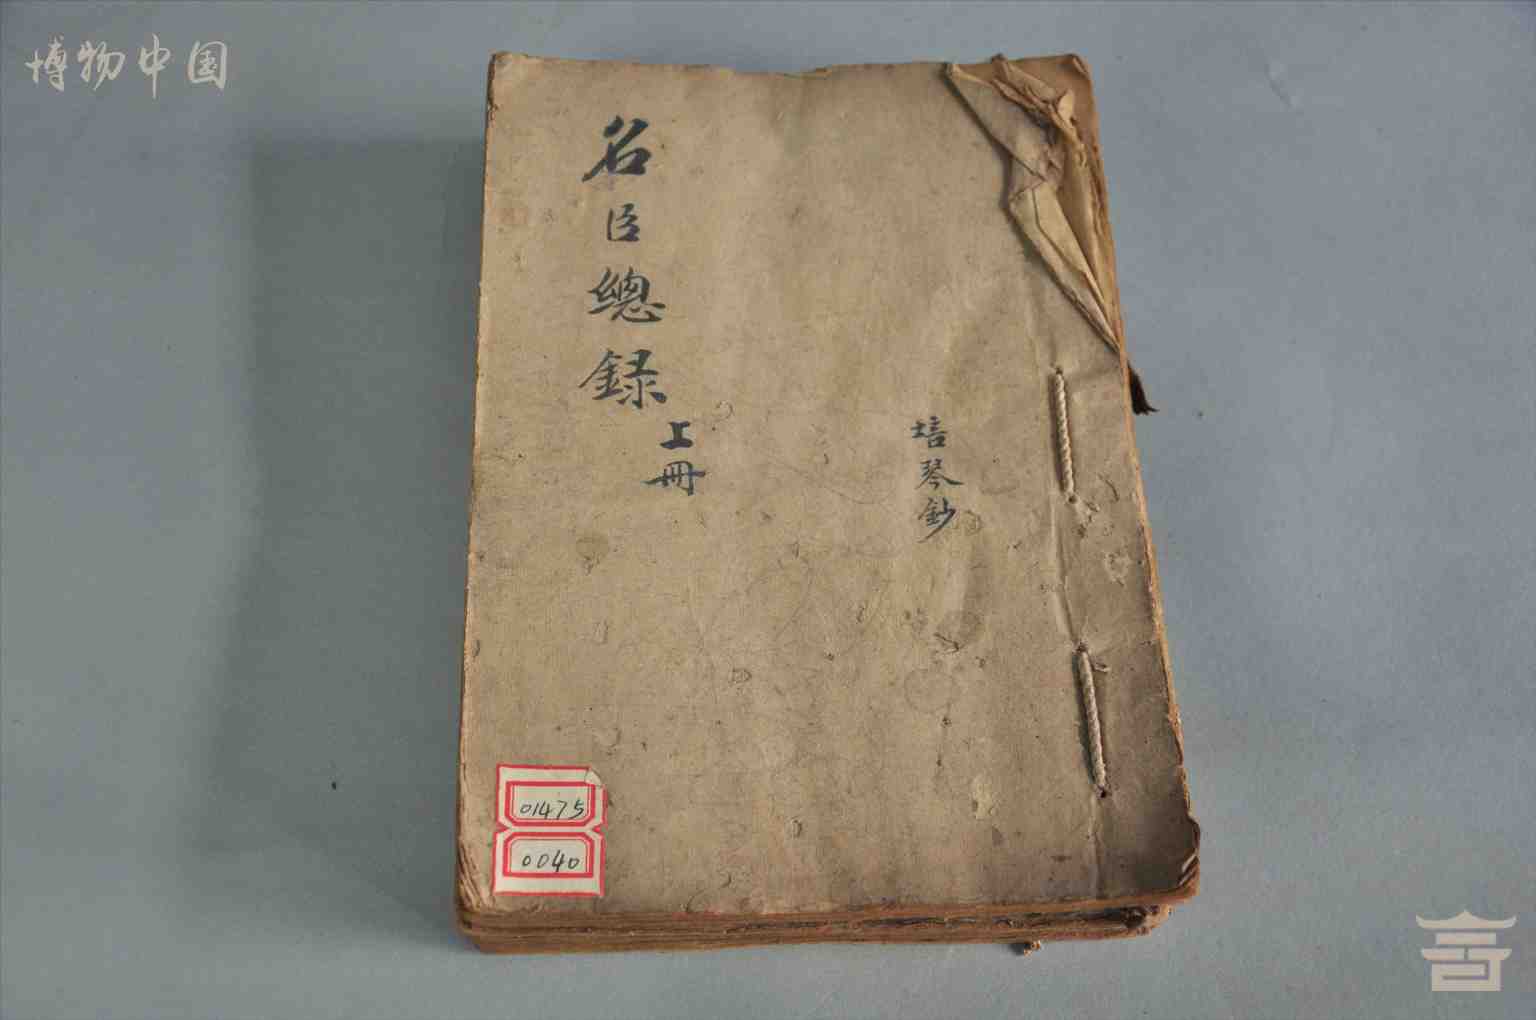 博物中国
名臣總録
上冊
培琴鈔
01475
0040